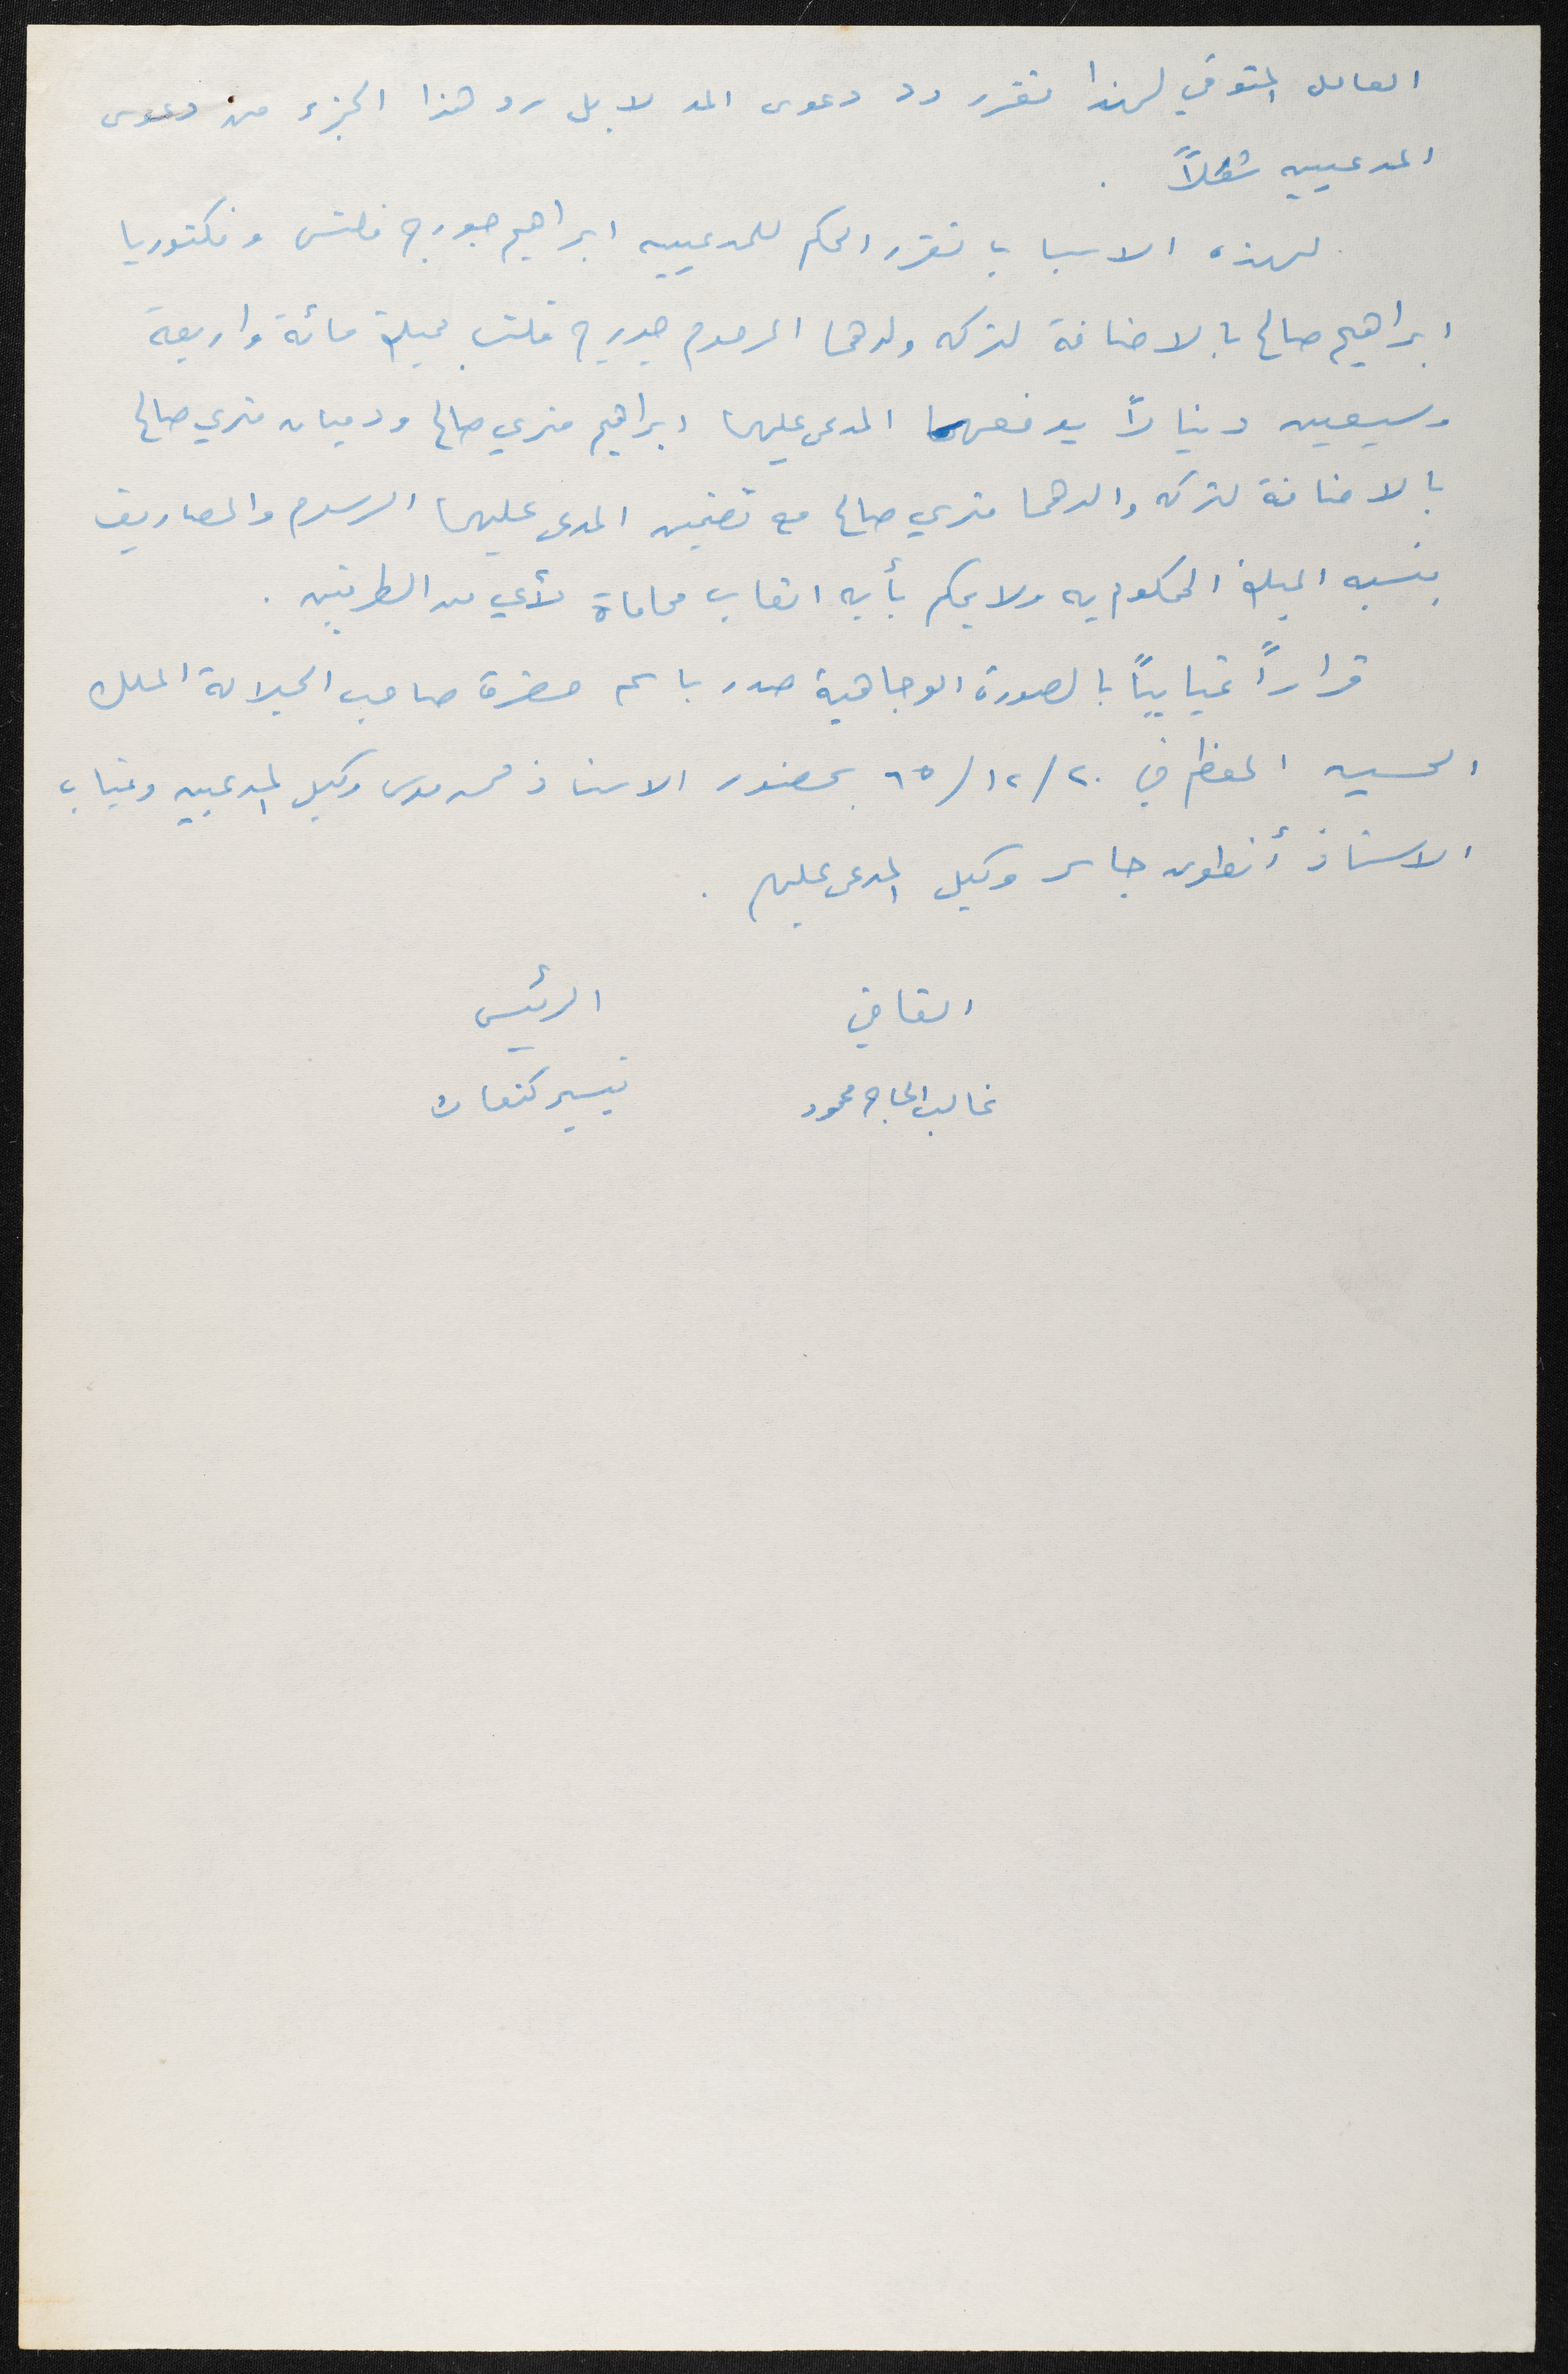 العامل المتوفي لهذا نقرر رد دعوى المد لا بل رد هذا الجزء من دعوى
المدعيين شكلاً .
لهذه الاسباب نقرر الحكم للمدعيين ابراهيم جورج فلتس وفكتوريا
ابراهيم صالح بالاضافة لتركه ولدهما المرحوم جورج فلتس بمبلغ مائة واربعة
وسبعين ديناراً يدفعها المدعى عليهما ابراهيم متري صالح ودميان متري صالح
بالاضافة لتركه والدهما متري صالح مع تضمين المدعى عليهما الرسوم والمصاريف
بنسبه المبلغ المحكوم به ولا يحكم بأيه اتعاب محاماة لأي من الطرفين .
قراراً غيابياً بالصورة الوجاهية صدر باسم حضرة صاحب الجلالة الملك
الحسين المعظم في ٢٠/١٢/٦٥ بحضور الاستاذ وكيل المدعيين وغياب
الاستاذ أنطون جاسر وكيل المدعى عليهم .
القاضي الرئيس
غالب الحاج محمود تيسير كنعان